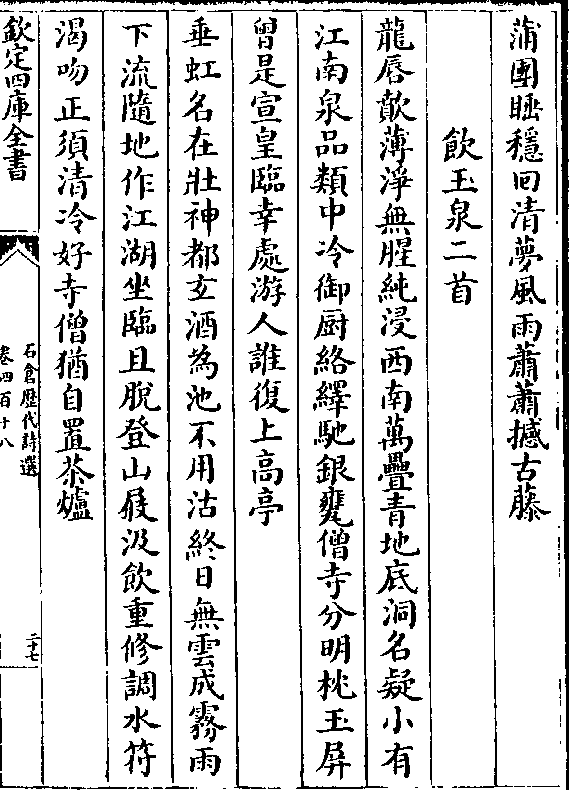 蒲團睡穩回清夢風雨蕭蕭撼古藤
飲玉泉二首
龍唇歕薄淨無腥純浸西南萬疊青地底洞名疑小有
江南泉品類中泠御厨絡繹馳銀甕僧寺分明枕玉屏
曾是宣皇臨幸處游人誰復上高亭
垂虹名在壯神都玄酒為池不用沽終日無雲成霧雨
下流隨地作江湖坐臨且脫登山屐汲飲重修調水符
渴吻正須清泠好寺僧猶自置茶爐
欽定四庫全書
石倉歷代詩選
卷四百十八
二十七